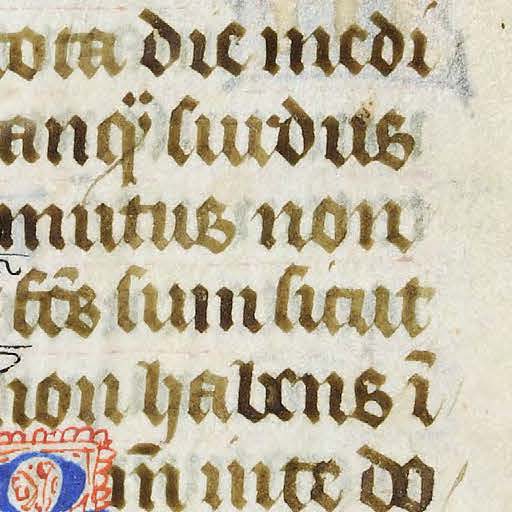 tota die medi
anq̈ surdus
mutus non
f̄c̄s sum sicut
non habens ī
m̄ in te do